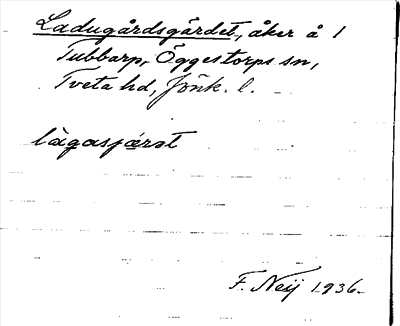 Ladugårdsgärdet, åker å 1
Tubbarp, Öggestorps sn,
Tveta hd, Jönk. l.
lägasjárət
F. Neij 1936.